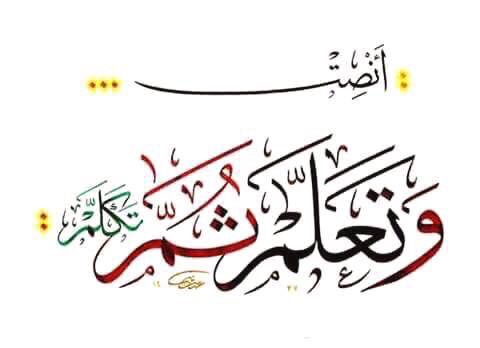 : أَنْصِتْ ...
وَتَعَلَّمْ ثُمَّ تَكَلَّمْ :